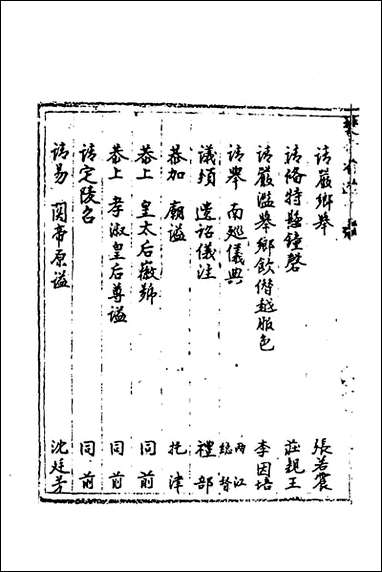 請嚴鄉舉 張若震
請備特懸鐘磬 莊親王
請嚴濫舉鄉飲僭越服色 李因培
請舉 南巡儀典 兩江總督
議頒 遺詔儀注 禮部
恭加 廟諡 托津
恭上 皇太后徽號 同前
恭上 孝淑皇后尊諡 同前
請定陵名 同前
請易 関帝原諡 沈廷芳